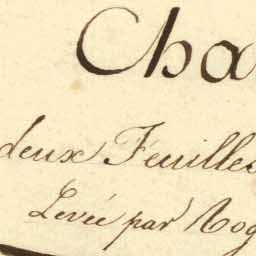 Cha
deux Feuilles
Levée par Rog